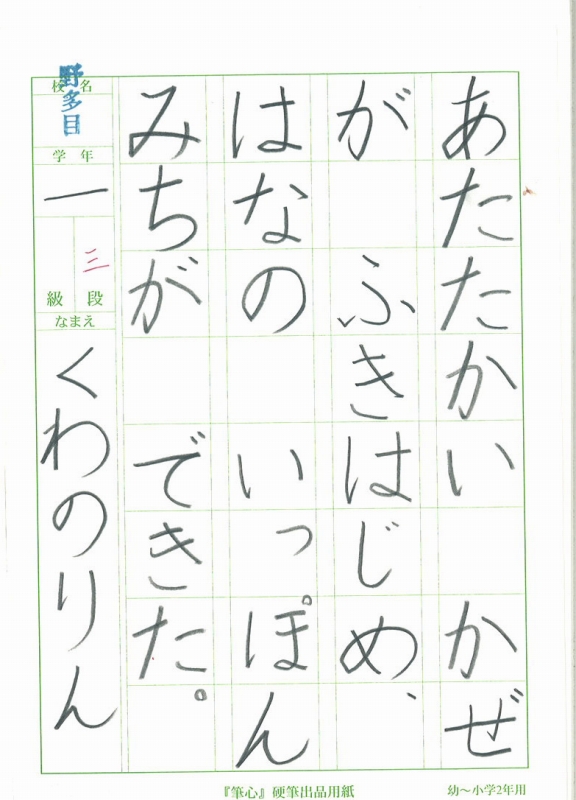 あたたかい　かぜ
が　ふきはじめ、
はなの　いっぽん
みちが　できた。
校名
野多目
学年
一
三
級　段
なまえ
くわのりん
『筆心』硬筆出品用紙
幼〜小学2年用